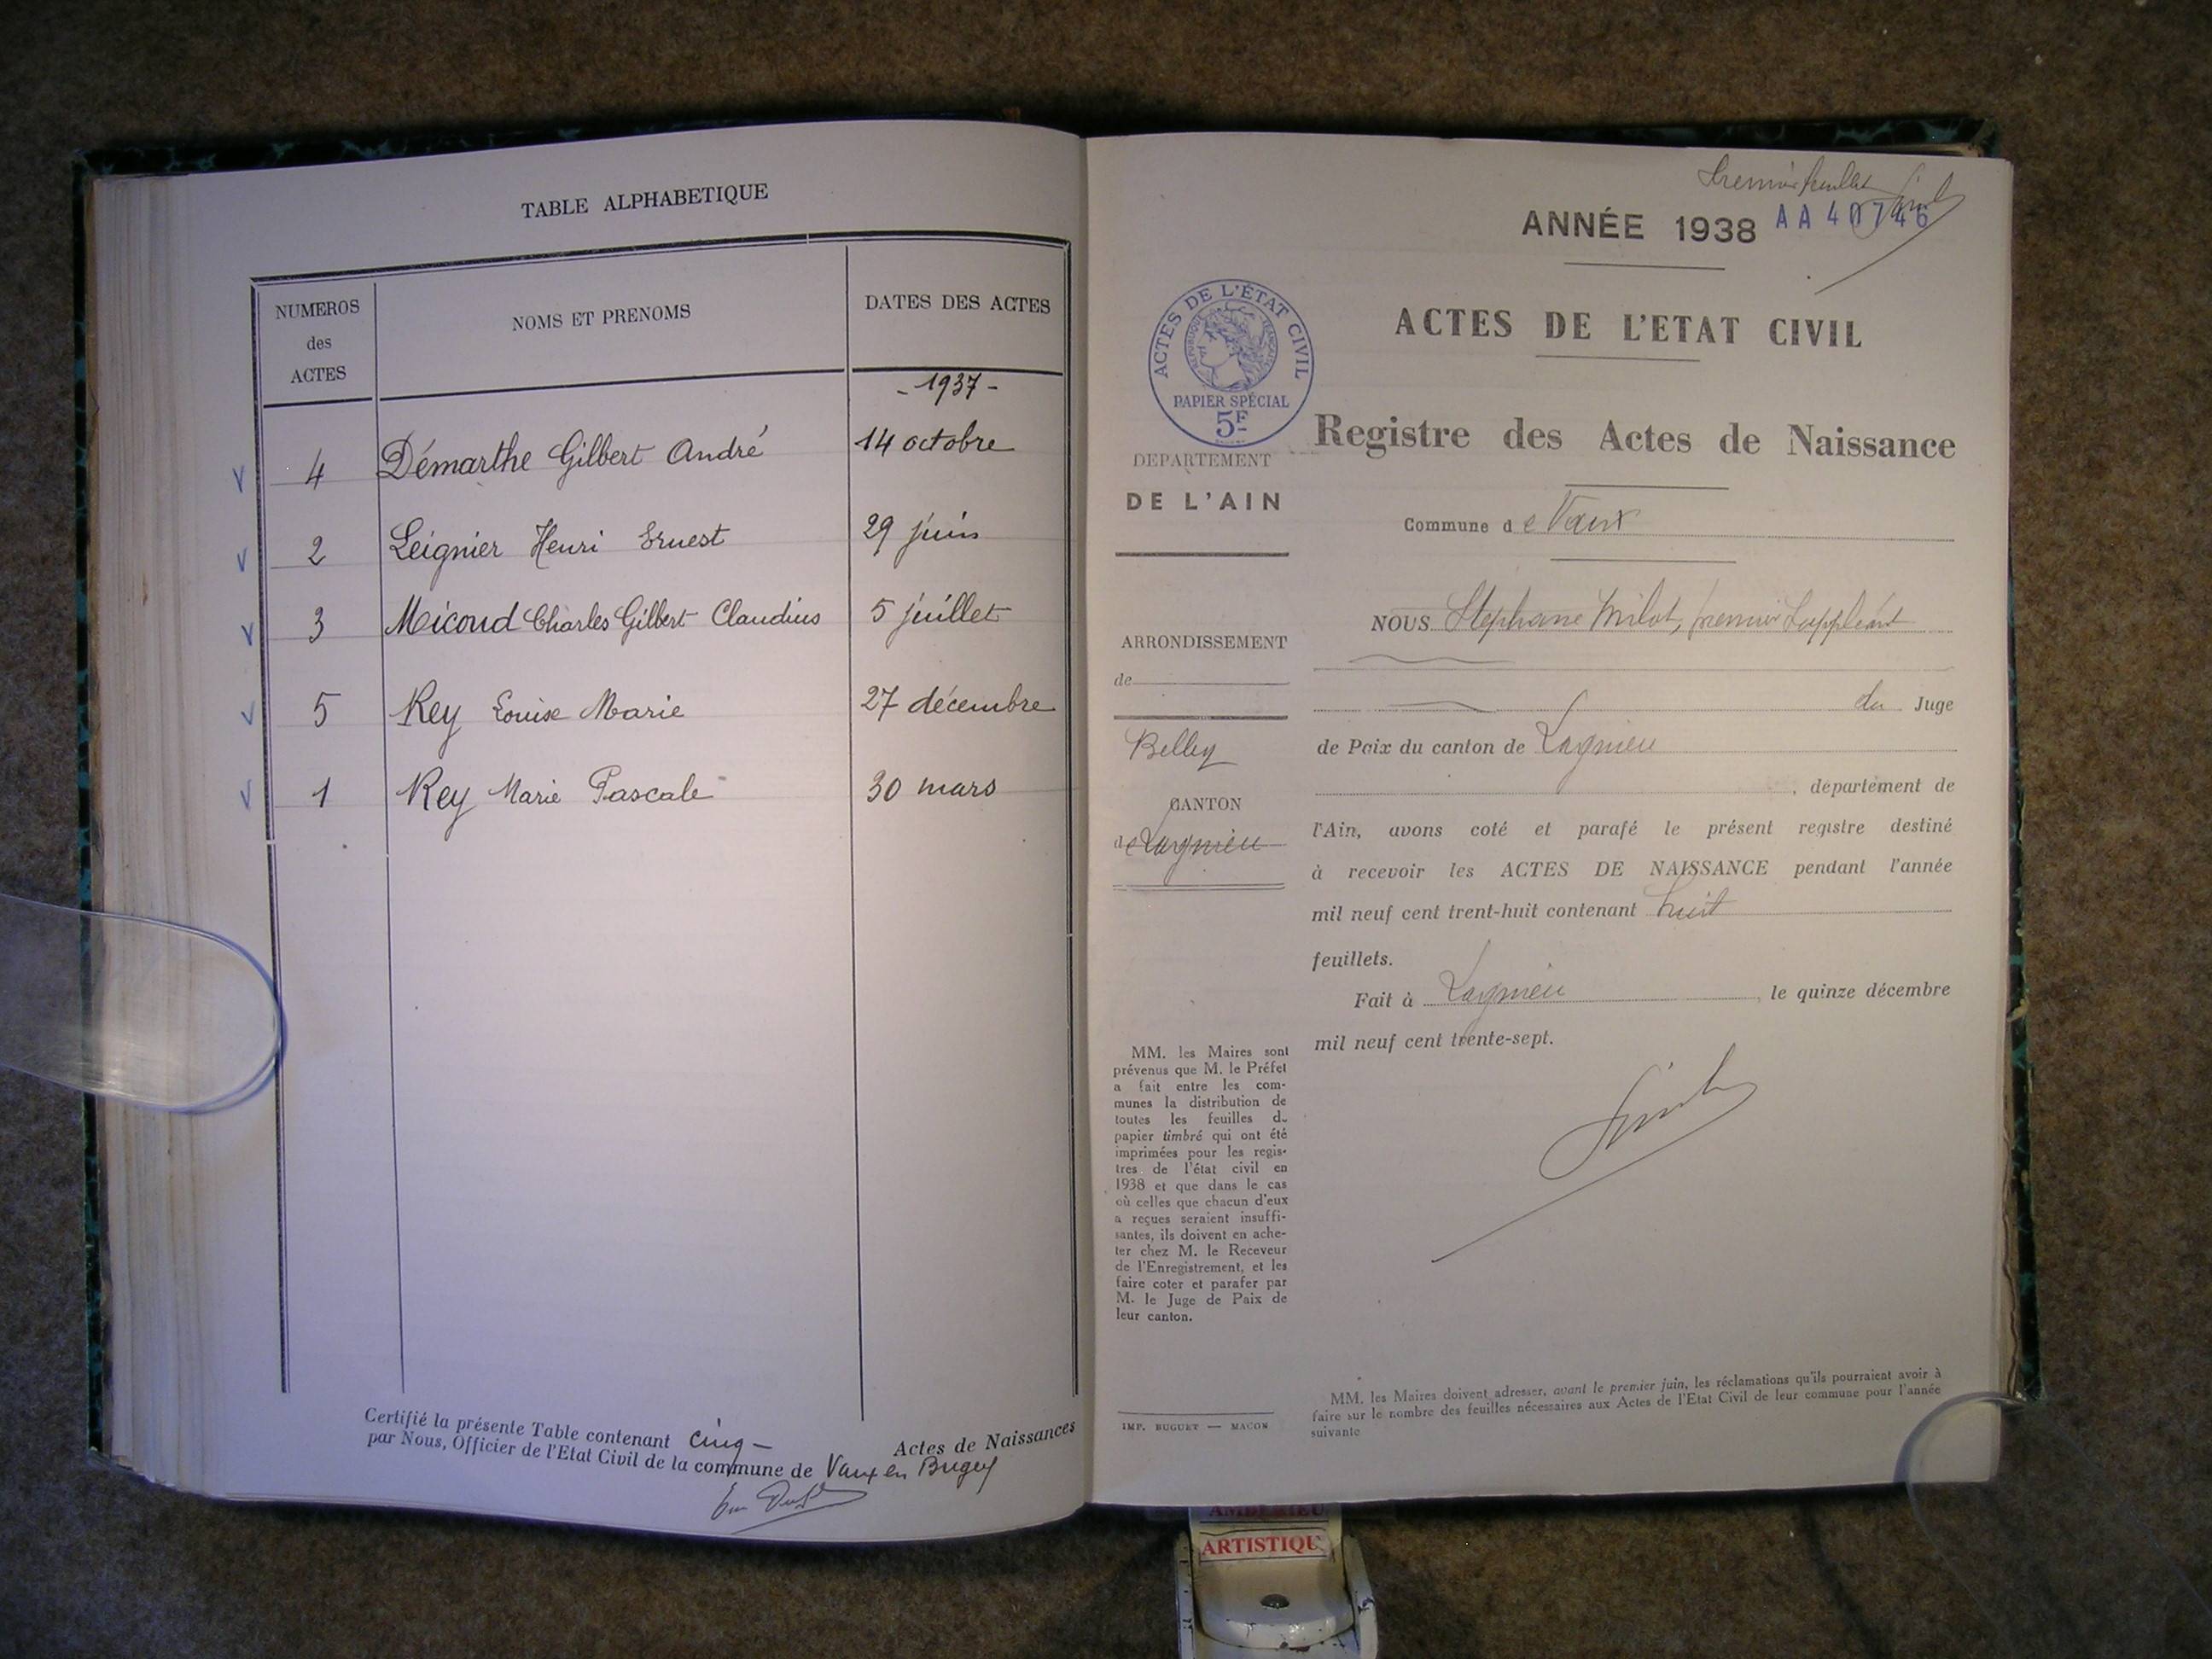 TABLE ALPHABETIQUE
NUMEROS des ACTES
NOMS ET PRENOMS
DATES DES ACTES
- 1937 -
4 Démarthe Gilbert André 14 octobre
2 Leignier Henri Ernest 29 juin
3 Micoud Charles Gilbert Claudius 5 juillet
5 Rey Louise Marie 27 décembre
1 Rey Marie Pascale 30 mars
Certifié la présente Table contenant cinq - Actes de Naissances
par Nous, Officier de l'Etat Civil de la commune de Vaux en Bugey
Premier feuillet
ANNÉE 1938 AA 40746
ACTES DE L'ÉTAT CIVIL
RÉPUBLIQUE FRANÇAISE
PAPIER SPÉCIAL
5F
ACTES DE L'ETAT CIVIL
Registre des Actes de Naissance
DEPARTEMENT
DE L'AIN
ARRONDISSEMENT
de
Belley
CANTON
de Lagnieu
Commune de Vaux
NOUS Stephane Milot, premier Suppléant
du Juge
de Paix du canton de Lagnieu
, département de
l'Ain, avons coté et parafé le présent registre destiné
à recevoir les ACTES DE NAISSANCE pendant l'année
mil neuf cent trent-huit contenant huit
feuillets.
Fait à Lagnieu, le quinze décembre
mil neuf cent trente-sept.
MM. les Maires sont
prévenus que M. le Préfet
a fait entre les com-
munes la distribution de
toutes les feuilles du
papier timbré qui ont été
imprimées pour les regis-
tres de l'état civil en
1938 et que dans le cas
où celles que chacun d'eux
a reçues seraient insuffi-
santes, ils doivent en ache-
ter chez M. le Receveur
de l'Enregistrement, et les
faire coter et parafer par
M. le Juge de Paix de
leur canton.
IMP. BUGUET — MACON
MM. les Maires doivent adresser, avant le premier juin, les réclamations qu'ils pourraient avoir à
faire sur le nombre des feuilles nécessaires aux Actes de l'Etat Civil de leur commune pour l'année
suivante
AMBERIEU
ARTISTIQU